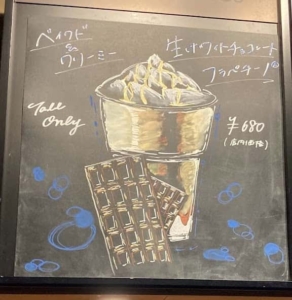 ベイクド
&
クリーミー
生いホワイトチョコレート
フラペチーノ
Tall
Only
¥680
(店内価格)